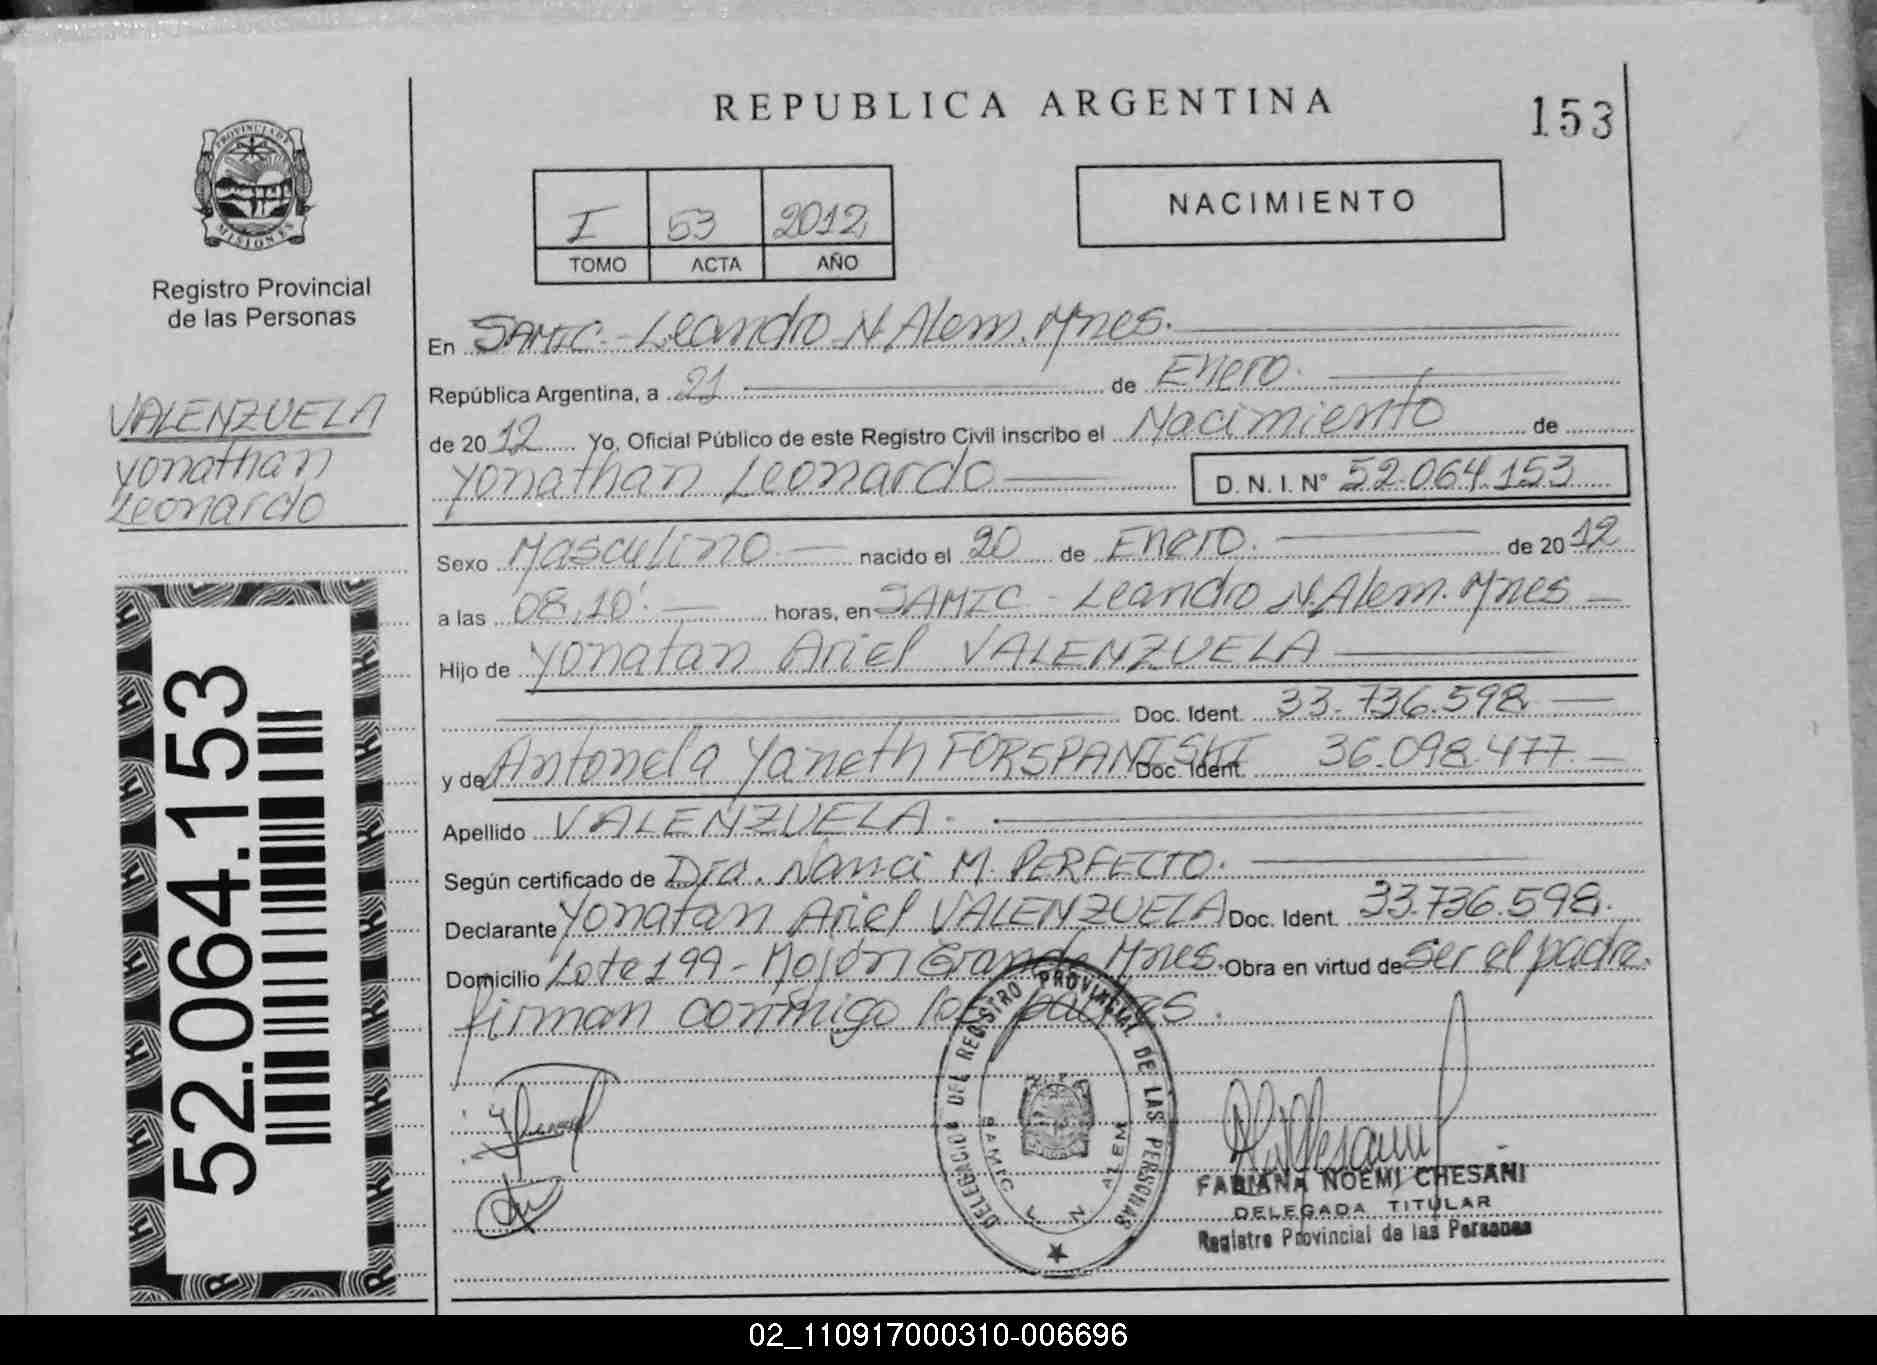 REPUBLICA ARGENTINA
153
PROVINCIA DE
MISIONES
Registro Provincial
de las Personas
I 53 2012
TOMO ACTA AÑO
NACIMIENTO
VALENZUELA
Yonathan
Leonardo
52.064.153
En SAMIC - Leandro N. Alem. Mnes.
República Argentina, a 21 de Enero.
de 2012 Yo, Oficial Público de este Registro Civil inscribo el Nacimiento de
Yonathan Leonardo D. N. I. N° 52.064.153
Sexo Masculino nacido el 20 de Enero. de 2012
a las 08,10'. horas, en SAMIC - Leandro N. Alem. Mnes
Hijo de Yonatan Ariel VALENZUELA
Doc. Ident. 33.736.598
y de Antonela Yaneth FORSPANISKI Doc. Ident. 36.098.477.
Apellido VALENZUELA.
Según certificado de Dra. Nanci M. PERFECTO.
Declarante Yonatan Ariel VALENZUELA Doc. Ident. 33.736.598.
Domicilio Lote 199 - Mojón Grande Mnes. Obra en virtud de ser el padre.
firman conmigo los padres.
DELEGACION DEL REGISTRO PROVINCIAL DE LAS PERSONAS
SAMIC L N ALEM
FABIANA NOEMI CHESANI
DELEGADA TITULAR
Registro Provincial de las Personas
02_110917000310-006696